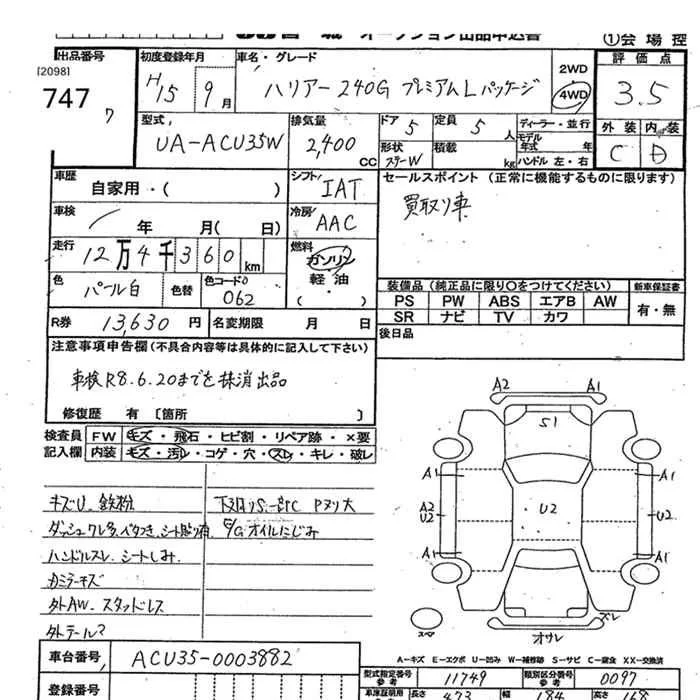 オークション出品申込書 ①会場控
出品番号
[2098]
747 7
初度登録年月
H15 9月
車名・グレード
ハリアー 240G プレミアムLパッケージ
2WD
4WD
評価点
3.5
外装 内装
C D
型式
UA-ACU35W
排気量
2,400 CC
ドア 5
形状 ステーW
定員 5 人
積載 kg
ディーラー・並行
モデル年式 年
ハンドル 左・右
車歴
自家用・( )
シフト
IAT
セールスポイント (正常に機能するものに限ります)
買取り車
車検
/ 年 月( 日)
冷房
AAC
走行
12万4千360km
燃料
ガソリン
軽油
( )
色
パール白
色替
色コードNo
062
装備品 (純正品に限り〇をつけてください)
新車保証書
PS PW ABS エアB AW
有・無
SR ナビ TV カワ
R券 13,630円
名変期限 月 日
後日品
注意事項申告欄(不具合内容等は具体的に記入して下さい)
車検R8.6.20までを抹消出品
修復歴 有 〔箇所 〕
検査員 FW キズ・飛石・ヒビ割・リペア跡・×要
記入欄 内装 キズ・汚レ・コゲ・穴・スレ・キレ・破レ
キズU. 鉄粉
下回りS.
Pヌリ大
ダッシュワレ多 ベタつき シート貼り有
E/G オイルにじみ
ハンドルスレ シートしみ.
カミラーキズ
外AW. スタッドレス
外テール?
A2 A1
S1
A1 A1
A2
U2
U2
U2
A1 A1
スペア
スレ
オサレ
A-キズ E-エクボ U-凹み W-補修跡 S-サビ C-腐食 XX-交換済
車台番号
ACU35-0003882
型式指定番号 参考
11749
類別区分番号 参考
0097
登録番号
車庫証明用 参考
長さ 473
幅 184
高さ 168